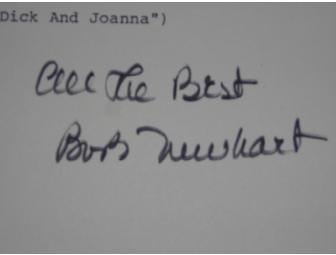 Dick And Joanna")
All The Best
Bob Newhart